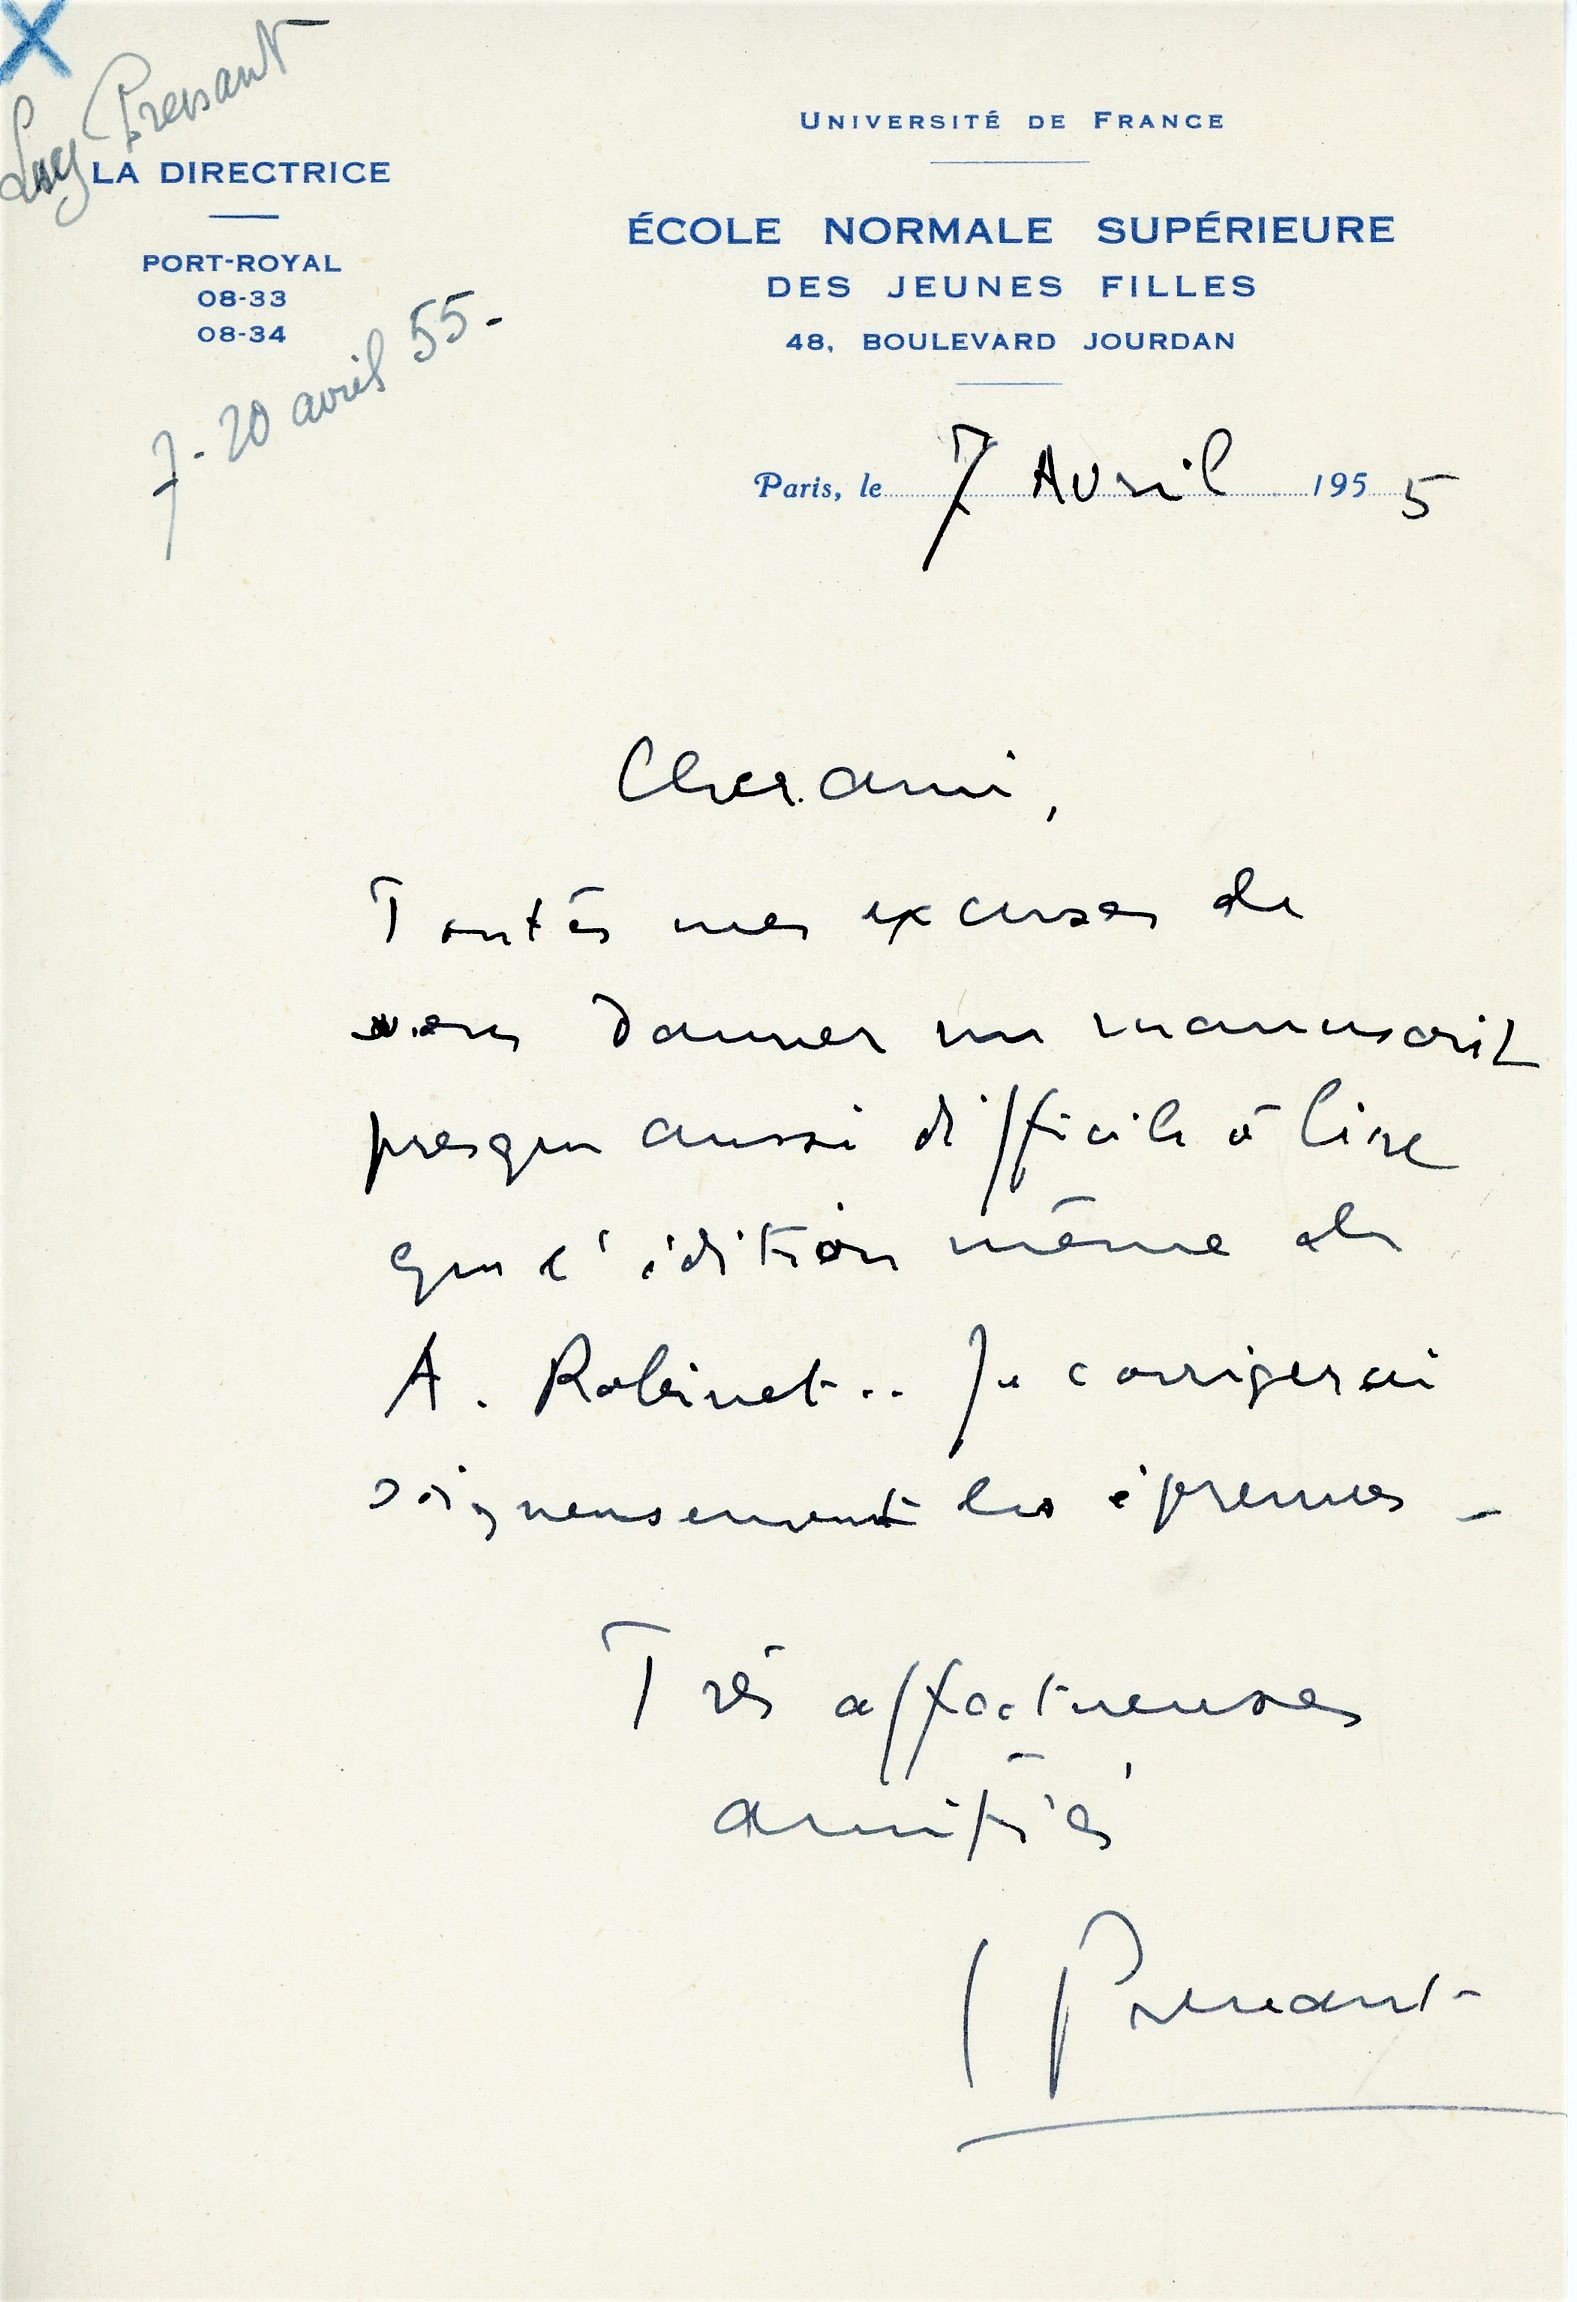 Lucy Prenant
LA DIRECTRICE
PORT-ROYAL
08-33
08-34
7-20 avril 55-
UNIVERSITÉ DE FRANCE
ÉCOLE NORMALE SUPÉRIEURE
DES JEUNES FILLES
48, BOULEVARD JOURDAN
Paris, le 7 Avril 1955
Cher ami,
Toutes mes excuses de
vous donner un manuscrit
presque aussi difficile à lire
que l'édition même de
A. Robinet.. Je corrigerai
soigneusement les épreuves -
Très affectueuses
amitiés
L Prenant